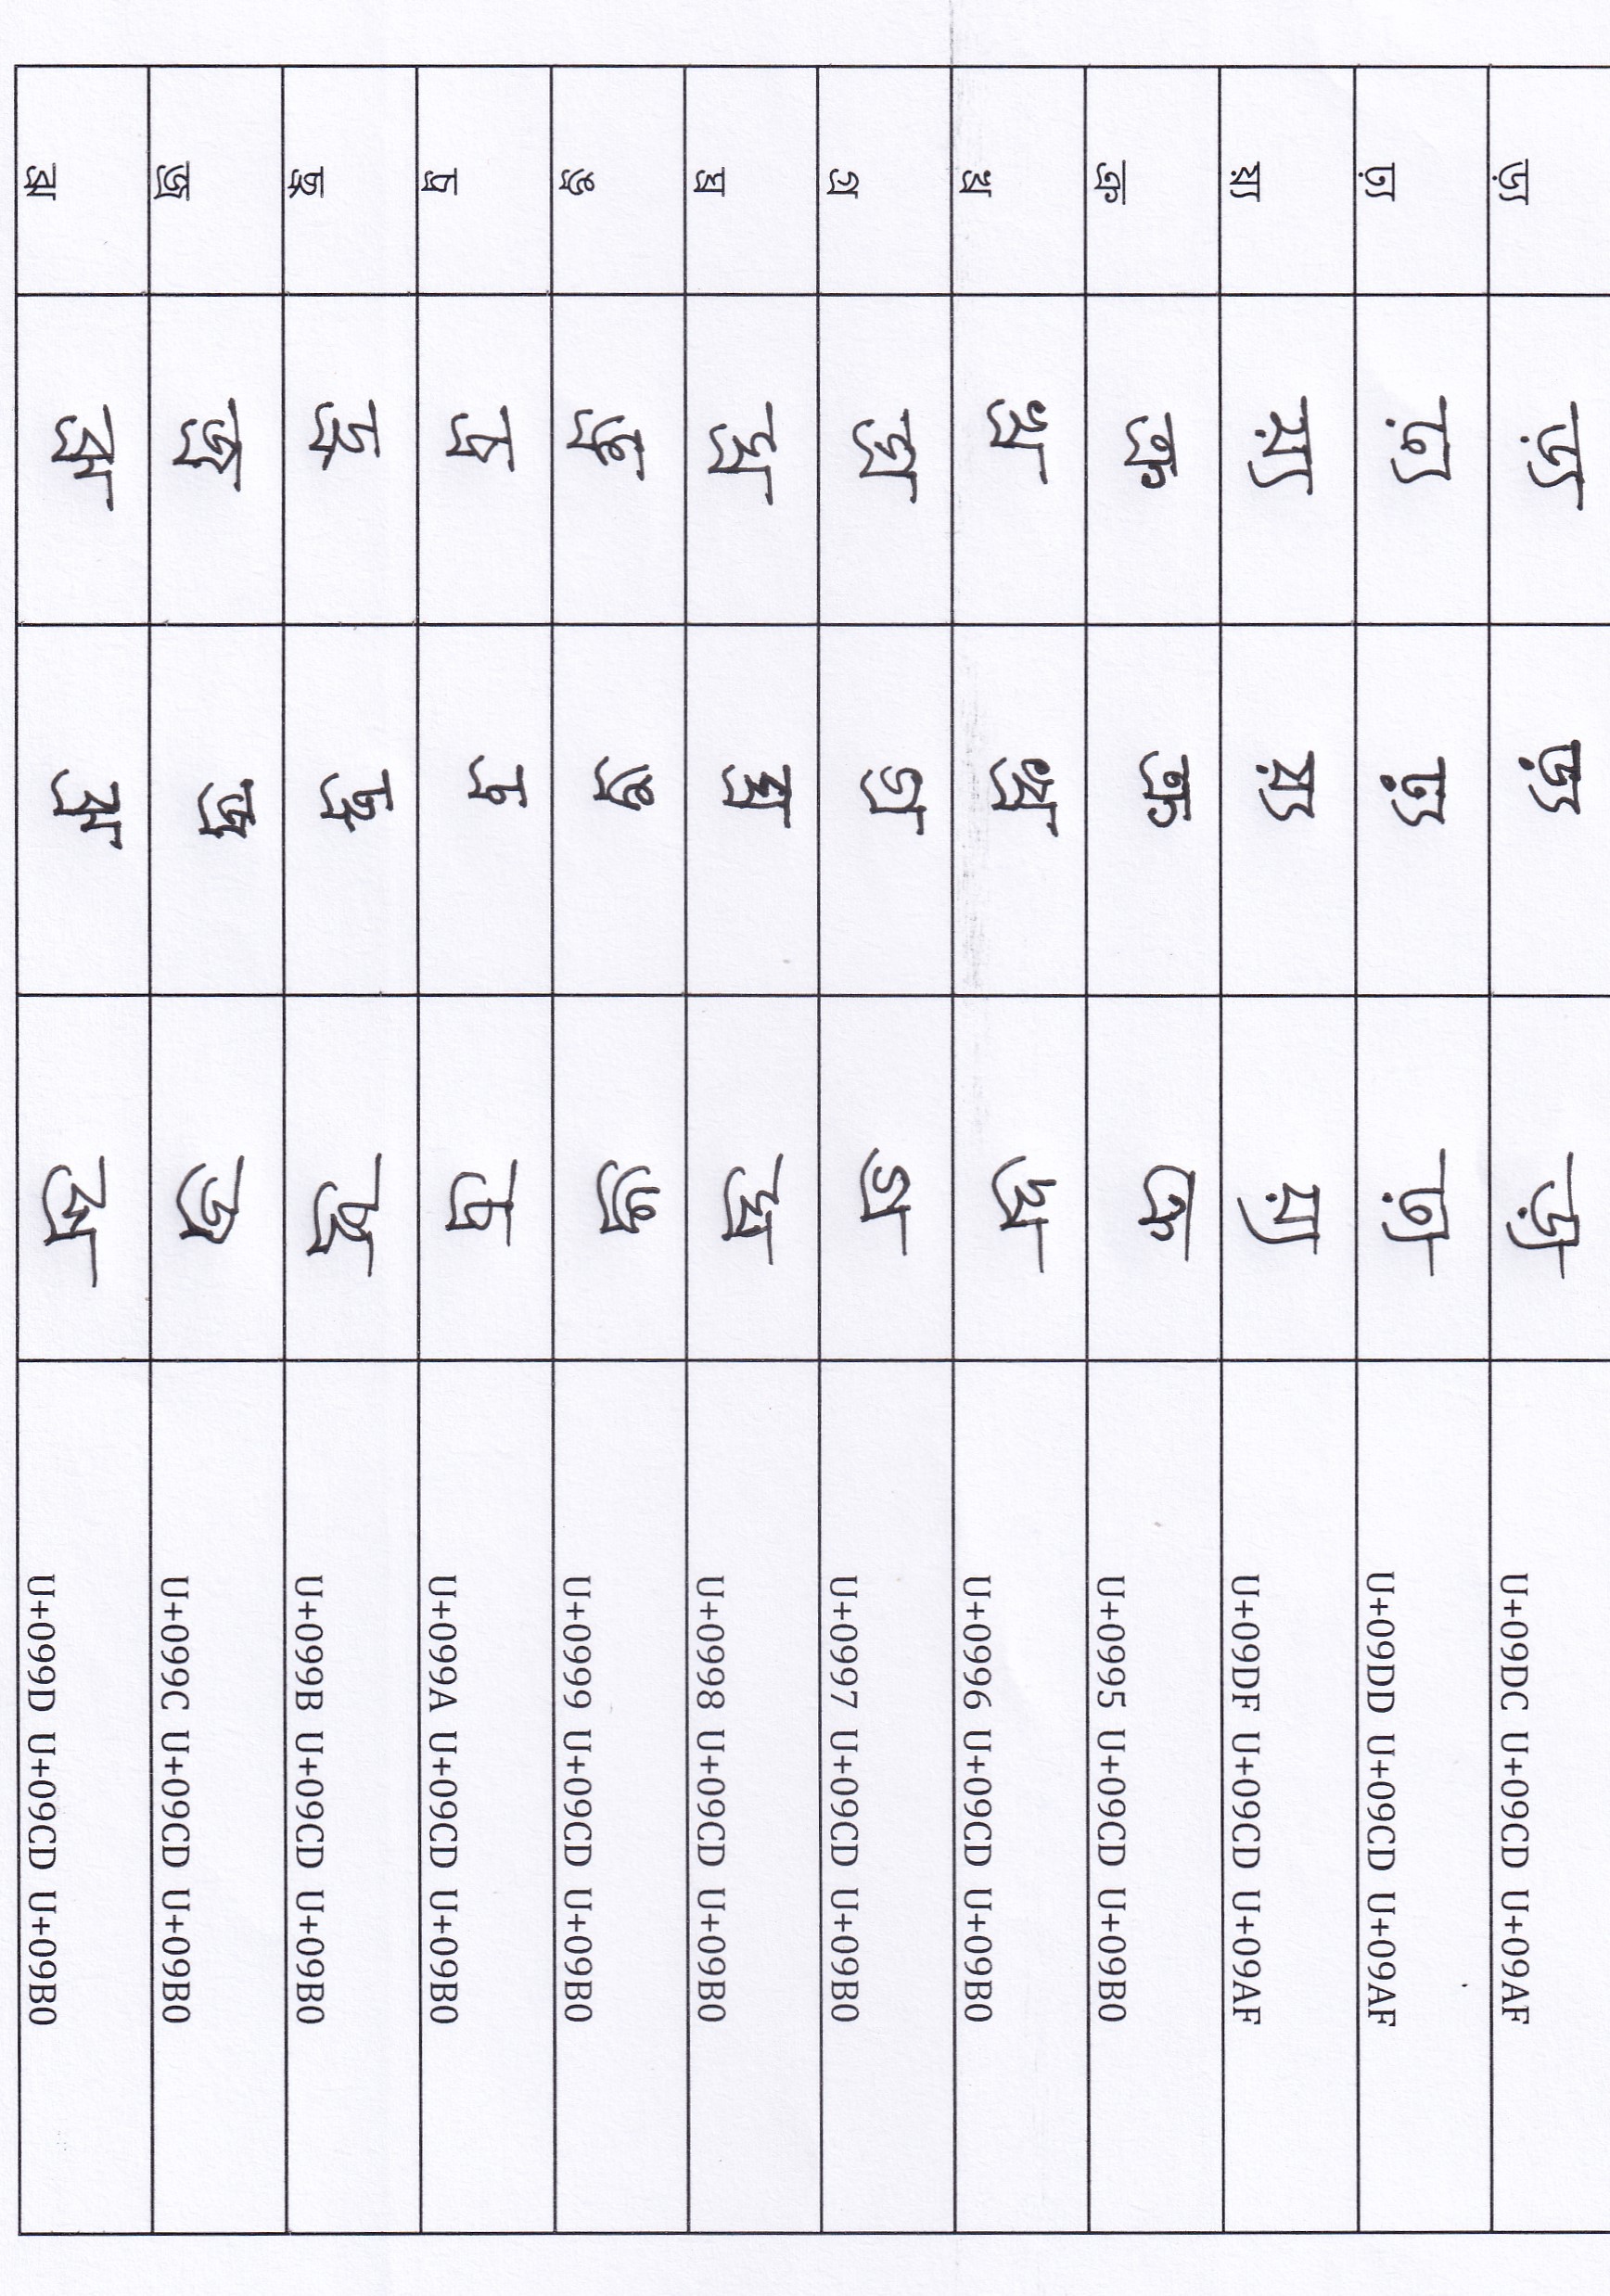 ড়্য ড়্য ড়্য ড়্য U+09DC U+09CD U+09AF
ঢ়্য ঢ়্য ঢ়্য ঢ়্য U+09DD U+09CD U+09AF
য়্য য়্য য়্য য়্য U+09DF U+09CD U+09AF
ক্র ক্র ক্র ক্র U+0995 U+09CD U+09B0
খ্র খ্র খ্র খ্র U+0996 U+09CD U+09B0
গ্র গ্র গ্র গ্র U+0997 U+09CD U+09B0
ঘ্র ঘ্র ঘ্র ঘ্র U+0998 U+09CD U+09B0
ঙ্র ঙ্র ঙ্র ঙ্র U+0999 U+09CD U+09B0
চ্র চ্র চ্র চ্র U+099A U+09CD U+09B0
ছ্র ছ্র ছ্র ছ্র U+099B U+09CD U+09B0
জ্র জ্র জ্র জ্র U+099C U+09CD U+09B0
ঝ্র ঝ্র ঝ্র ঝ্র U+099D U+09CD U+09B0